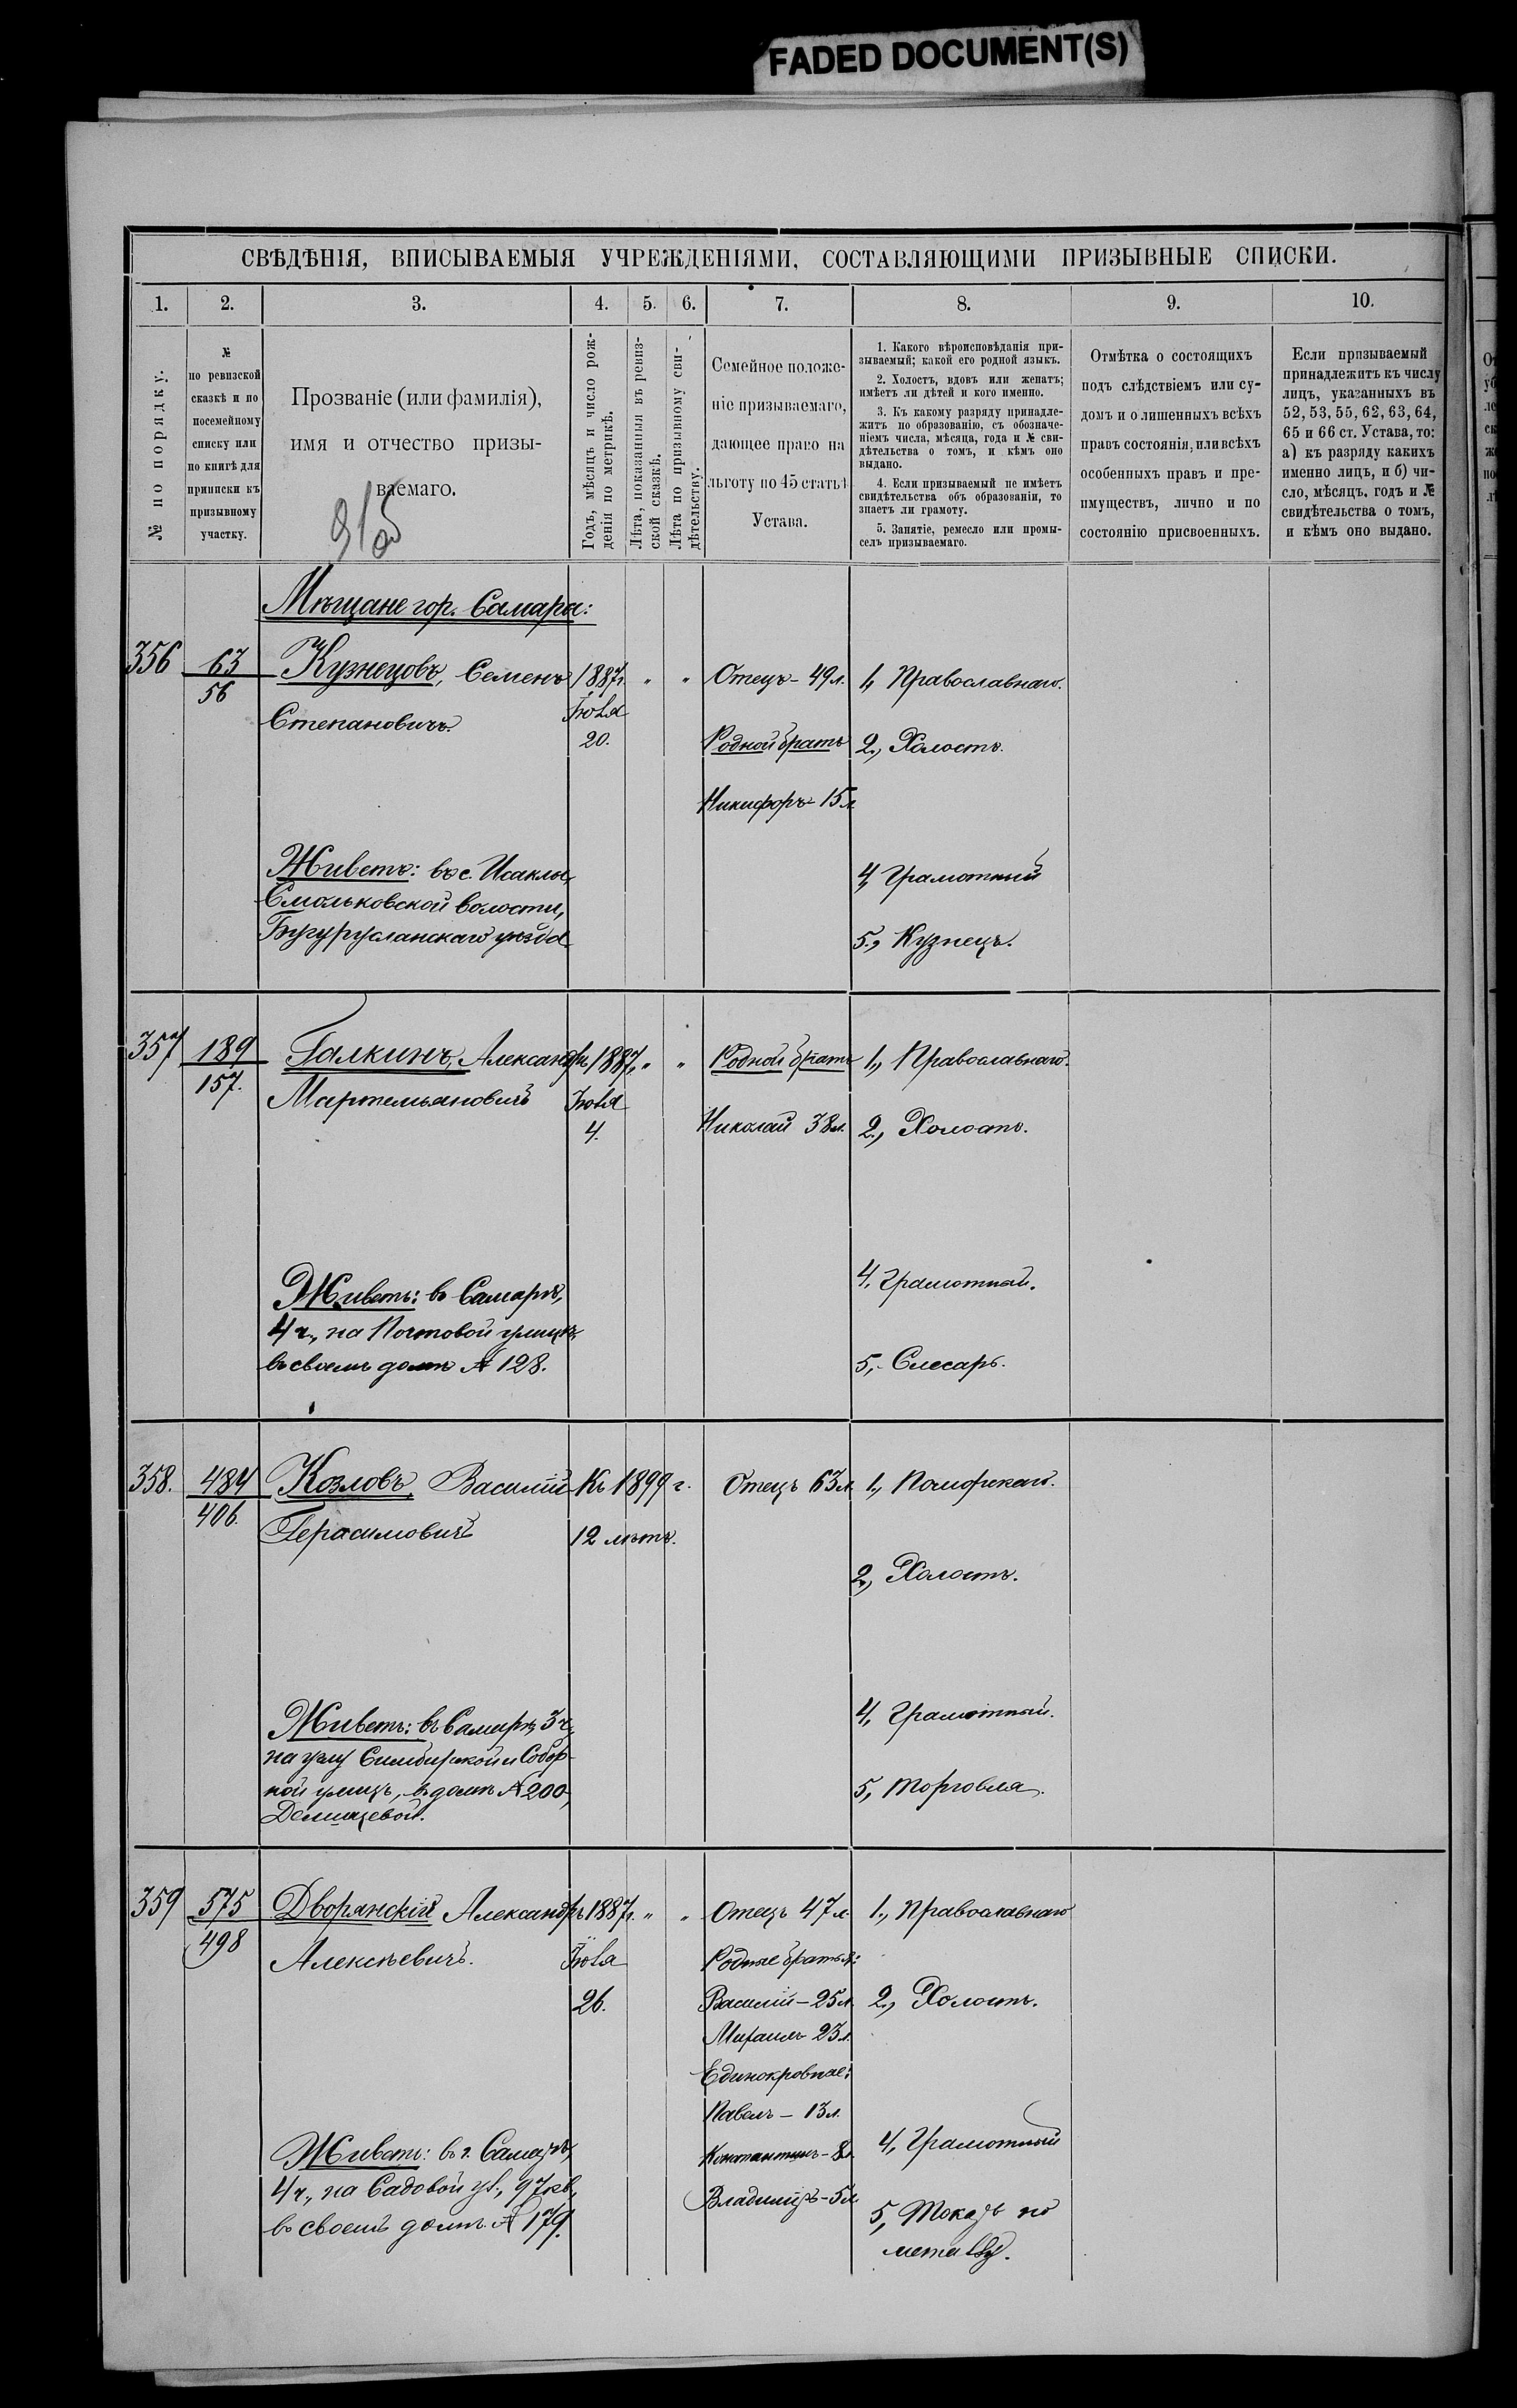 FADED DOCUMENT(S)
СВѢДѢНІЯ, ВПИСЫВАЕМЫЯ УЧРЕЖДЕНІЯМИ, СОСТАВЛЯЮЩИМИ ПРИЗЫВНЫЕ СПИСКИ.
1.
2.
3.
4.
5.
6.
7.
8.
9.
10.
№ по порядку.
№
по ревизской
сказкѣ и по
посемейному
списку или
по книгѣ для
приписки къ
призывному
участку.
Прозваніе (или фамилія),
имя и отчество призы-
ваемаго.
Годъ, мѣсяцъ и число рож-
денія по метрикѣ.
Лѣта, показанныя въ ревиз-
ской сказкѣ.
Лѣта по призывному сви-
дѣтельству.
Семейное положе-
ніе призываемаго,
дающее право на
льготу по 45 статьѣ
Устава.
1. Какого вѣроисповѣданія при-
зываемый; какой его родной языкъ.
2. Холостъ, вдовъ или женатъ;
имѣетъ ли дѣтей и кого именно.
3. Къ какому разряду принадле-
житъ по образованію, съ обозначе-
ніемъ числа, мѣсяца, года и № сви-
дѣтельства о томъ, и кѣмъ оно
выдано.
4. Если призываемый не имѣетъ
свидѣтельства объ образованіи, то
знаетъ ли грамоту.
5. Занятіе, ремесло или промы-
селъ призываемаго.
Отмѣтка о состоящихъ
подъ слѣдствіемъ или су-
домъ и о лишенныхъ всѣхъ
правъ состоянія, или всѣхъ
особенныхъ правъ и пре-
имуществъ, лично и по
состоянію присвоенныхъ.
Если призываемый
принадлежитъ къ числу
лицъ, указанныхъ въ
52, 53, 55, 62, 63, 64,
65 и 66 ст. Устава, то:
а) къ разряду какихъ
именно лицъ, и б) чи-
сло, мѣсяцъ, годъ и №
свидѣтельства о томъ,
и кѣмъ оно выдано.
Мѣщане гор. Самары:
356 63 Кузнецовъ, Семенъ 1887г. " " Отецъ - 49 л. 1, Православнаго.
56 Степановичъ. Іюля
20. Родной братъ 2., Холостъ.
Никифоръ - 15 л.
Живетъ: въ с. Исаклы, 4, Грамотный
Смольковской волости,
Бугурусланскаго уѣзда 5., Кузнецъ.
357 189 Галкинъ, Александръ 1887г. " " Родной братъ 1., Православнаго.
157. Мартемьяновичъ Іюля
4. Николай 38 л. 2., Холостъ.
Живетъ: въ Самарѣ, 4, Грамотный.
4 ч., на Почтовой улицѣ,
въ своемъ домѣ № 128. 5, Слесарь.
358. 484 Козловъ, Василій Къ 1899 г. Отецъ 63 л. 1., Поморскаго.
406. Герасимовичъ 12 лѣтъ.
2., Холостъ.
Живетъ: въ Самарѣ, 3 ч., 4, Грамотный.
на углу Симбирской и Собор-
ной улицъ, въ домѣ № 200, 5, Торговля.
359 575 Дворянскій Александръ 1887г. " " Отецъ 47 л. 1., Православнаго
498 Алексѣевичъ. Іюля Родные братья:
26. Василій - 25 л. 2., Холостъ.
Михаилъ 23 л.
Единокровные:
Павелъ - 13 л.
Живетъ: въ г. Самарѣ, Константинъ - 8 л. 4, Грамотный
4 ч., на Садовой ул., 97 кв., Владиміръ - 5 л.
въ своемъ домѣ № 179. 5, Токарь по
металлу.